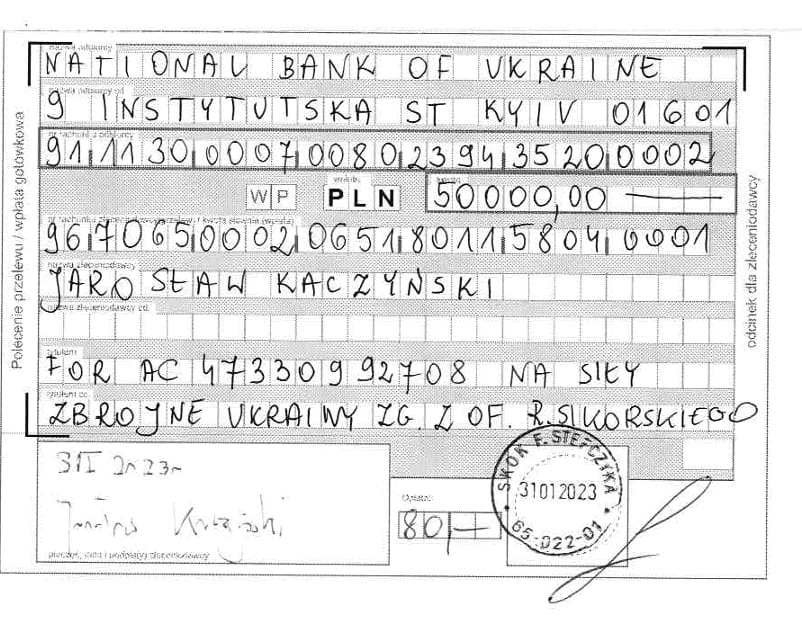 nazwa odbiorcy
NATIONAL BANK OF UKRAINE
nazwa odbiorcy cd.
9 INSTYTUTSKA ST KYIV 01601
nr rachunku odbiorcy
91 1130 0007 0080 2394 3520 0002
WP
waluta
PLN
kwota
50000,00
96 7065 0002 0651 8011 5804 0001
nazwa zleceniodawcy
JAROSŁAW KACZYŃSKI
nazwa zleceniodawcy cd.
tytułem
FOR AC 47330992708 NA SIŁY
tytułem cd.
ZBROJNE UKRAINY ZG. Z OF. R. SIKORSKIEGO
31 I 2023r
Opłata:
80,-
pieczęć, data i podpis(y) zleceniodawcy
SKOK F. STEFCZYKA
31012023
65-022-01
Polecenie przelewu / wpłata gotówkowa
odcinek dla zleceniodawcy